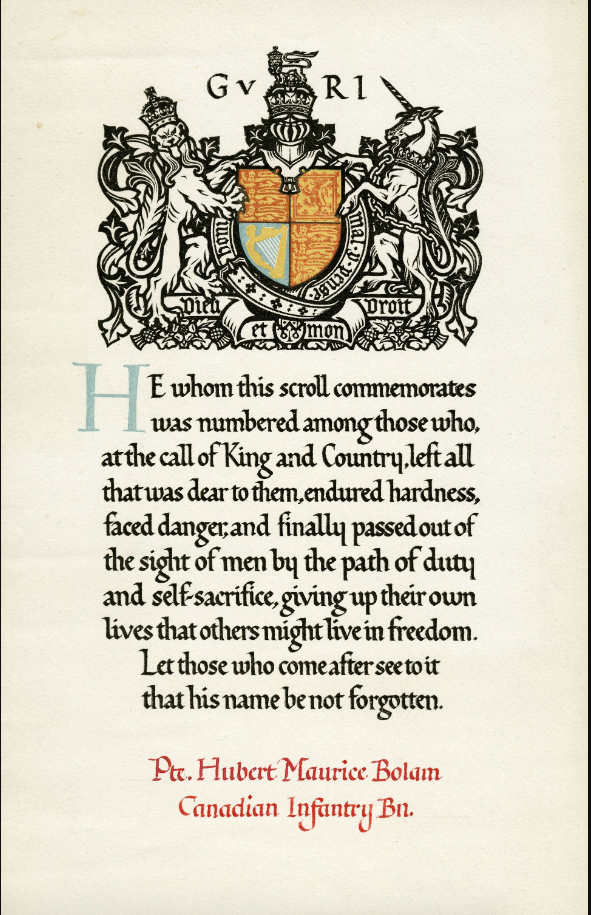 G v R I
Honi soit qui mal y pense
Dieu et mon Droit
HE whom this scroll commemorates
was numbered among those who,
at the call of King and Country, left all
that was dear to them, endured hardness,
faced danger, and finally passed out of
the sight of men by the path of duty
and self-sacrifice, giving up their own
lives that others might live in freedom.
Let those who come after see to it
that his name be not forgotten.
Pte. Hubert Maurice Bolam
Canadian Infantry Bn.